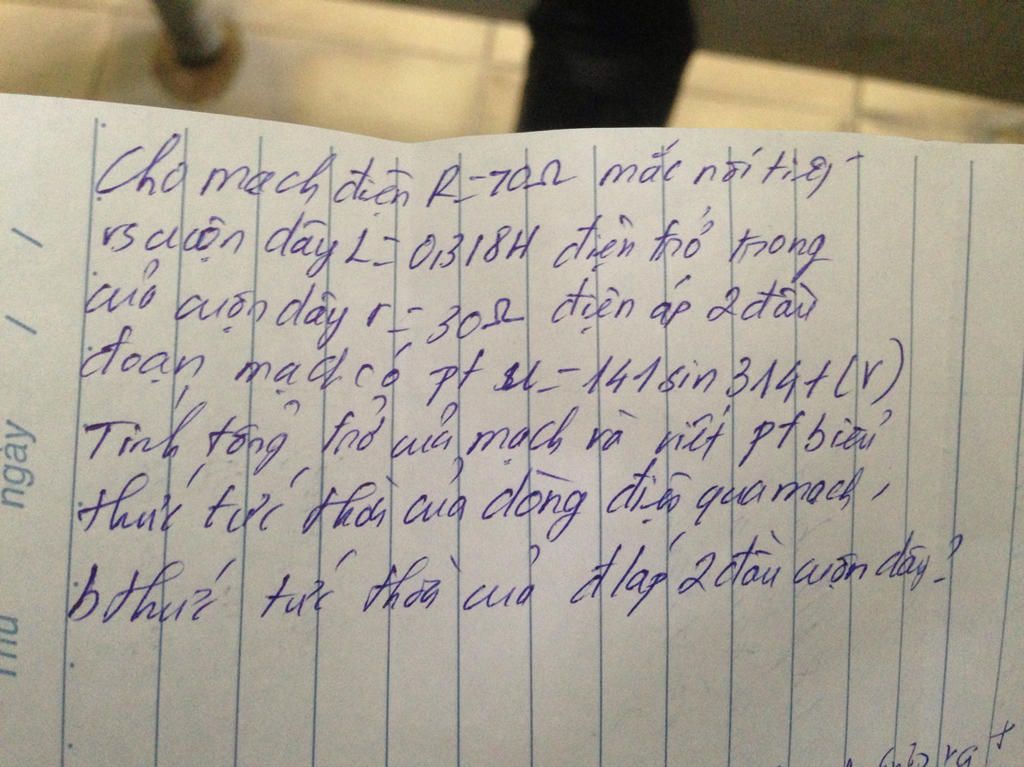 Cho mạch điện R=70Ω mắc nối tiếp
vs cuộn dây L=0,318H điện trở trong
của cuộn dây r=30Ω điện áp 2 đầu
đoạn mạch có pt u=141sin314t(V)
Tính tổng trở của mạch và viết pt biểu
thức tức thời của dòng điện qua mạch,
b thức tức thời của đ/áp 2 đầu cuộn dây?
Thứ ngày / /